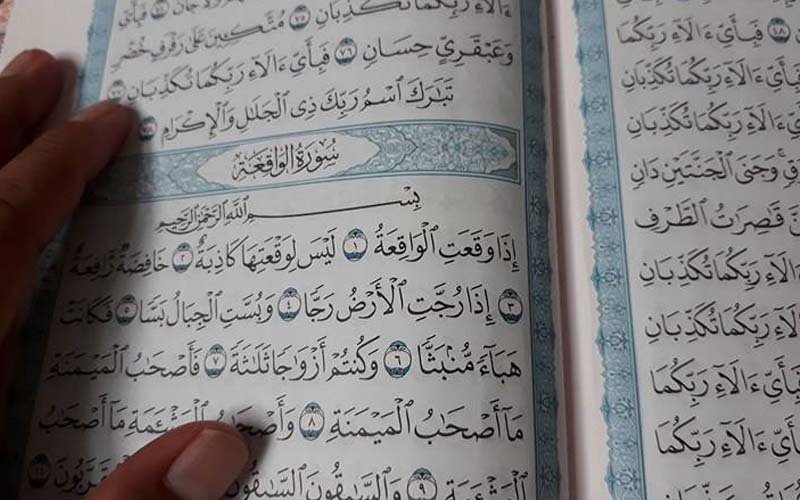 فَبِأَيِّ ءَالَآءِ رَبِّكُمَا
ءَالَآءِ رَبِّكُمَا تُكَذِّبَانِ
ءَالَآءِ رَبِّكُمَا تُكَذِّبَانِ
وَجَنَى ٱلْجَنَّتَيْنِ دَانٍ
قَٰصِرَٰتُ ٱلطَّرْفِ
ءَالَآءِ رَبِّكُمَا تُكَذِّبَانِ
ءَالَآءِ رَبِّكُمَا تُكَذِّبَانِ
بِأَيِّ ءَالَآءِ رَبِّكُمَا
بِأَيِّ ءَالَآءِ رَبِّكُمَا
ءَالَآءِ رَبِّكُمَا تُكَذِّبَانِ ٧٥ مُتَّكِـِٔينَ عَلَىٰ رَفْرَفٍ خُضْرٍ
وَعَبْقَرِيٍّ حِسَانٍ ٧٦ فَبِأَيِّ ءَالَآءِ رَبِّكُمَا تُكَذِّبَانِ ٧٧
تَبَٰرَكَ ٱسْمُ رَبِّكَ ذِى ٱلْجَلَٰلِ وَٱلْإِكْرَامِ ٧٨
سُورَةُ الوَاقِعَةِ
بِسْمِ ٱللَّهِ ٱلرَّحْمَٰنِ ٱلرَّحِيمِ
إِذَا وَقَعَتِ ٱلْوَاقِعَةُ ١ لَيْسَ لِوَقْعَتِهَا كَاذِبَةٌ ٢ خَافِضَةٌ رَّافِعَةٌ
٣ إِذَا رُجَّتِ ٱلْأَرْضُ رَجًّا ٤ وَبُسَّتِ ٱلْجِبَالُ بَسًّا ٥ فَكَانَتْ
هَبَآءً مُّنۢبَثًّا ٦ وَكُنتُمْ أَزْوَٰجًا ثَلَٰثَةً ٧ فَأَصْحَٰبُ ٱلْمَيْمَنَةِ
مَآ أَصْحَٰبُ ٱلْمَيْمَنَةِ ٨ وَأَصْحَٰبُ ٱلْمَشْـَٔمَةِ مَآ أَصْحَٰبُ
ٱلْمَشْـَٔمَةِ ٩ وَٱلسَّٰبِقُونَ ٱلسَّٰبِقُونَ